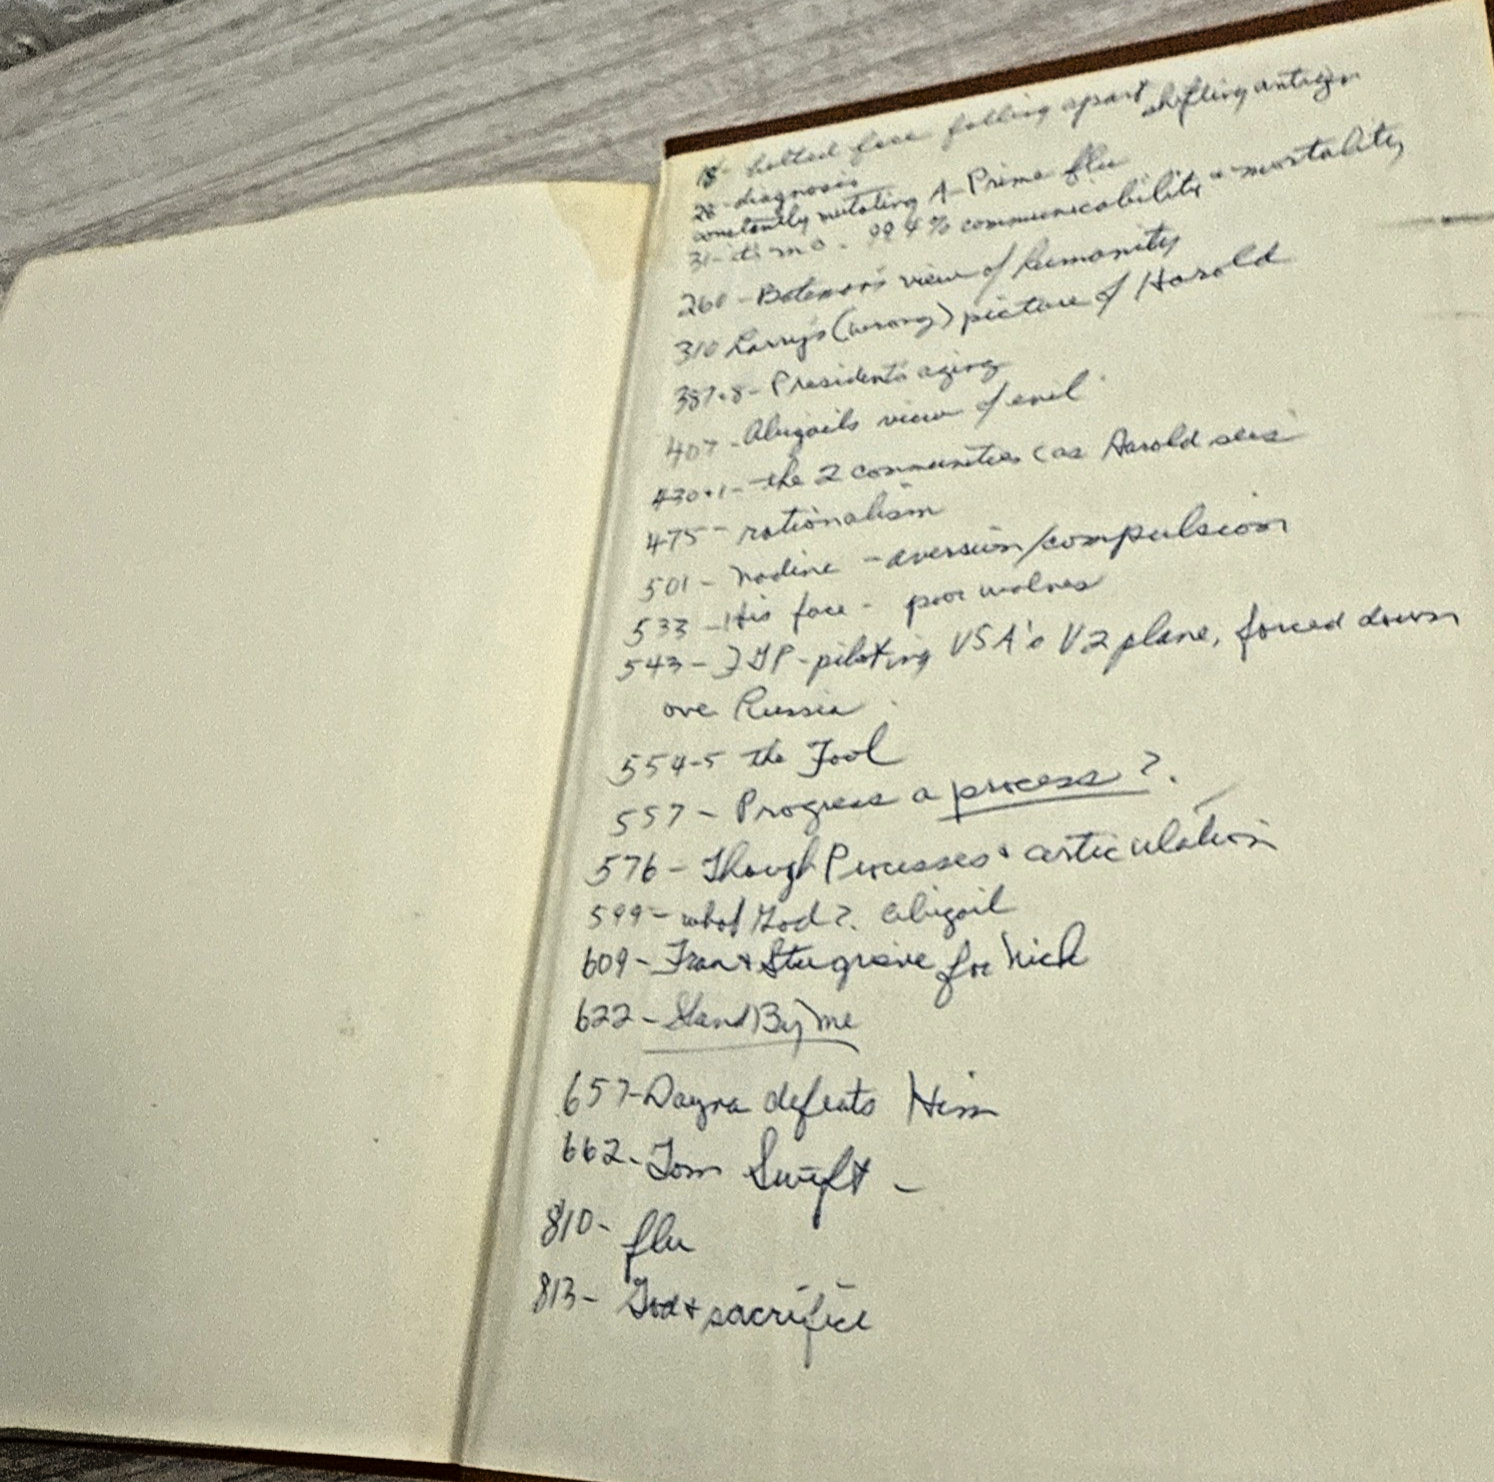 18- face falling apart shifting antigen
28- diagnosis
constantly mutating A-Prime flu
31- 99.4% communicability " mortality
260- Bateman's view of humanity
310 Larry's (wrong) picture of Harold
387+8- Presidents aging
407- Abigail's view of evil
430+1- the 2 communities (as Harold sees
475- rationalism
501- Nadine - aversion/compulsion
533- His face - poor wolves
543- piloting USA's U2 plane, forced down
over Russia
554-5 the Fool
557- Progress a process?
576- Though Processes + articulation
599- what God? Abigail
609- Fran + Stu grieve for Nick
622- Stand By Me
657- Dayna defeats Him
662- Tom Swift -
810- flu
813- God + sacrifice